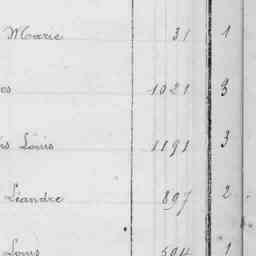 Marie 31 1
es 1021 3
is Louis 1191 3
Léandre 897 2
Louis 594 1